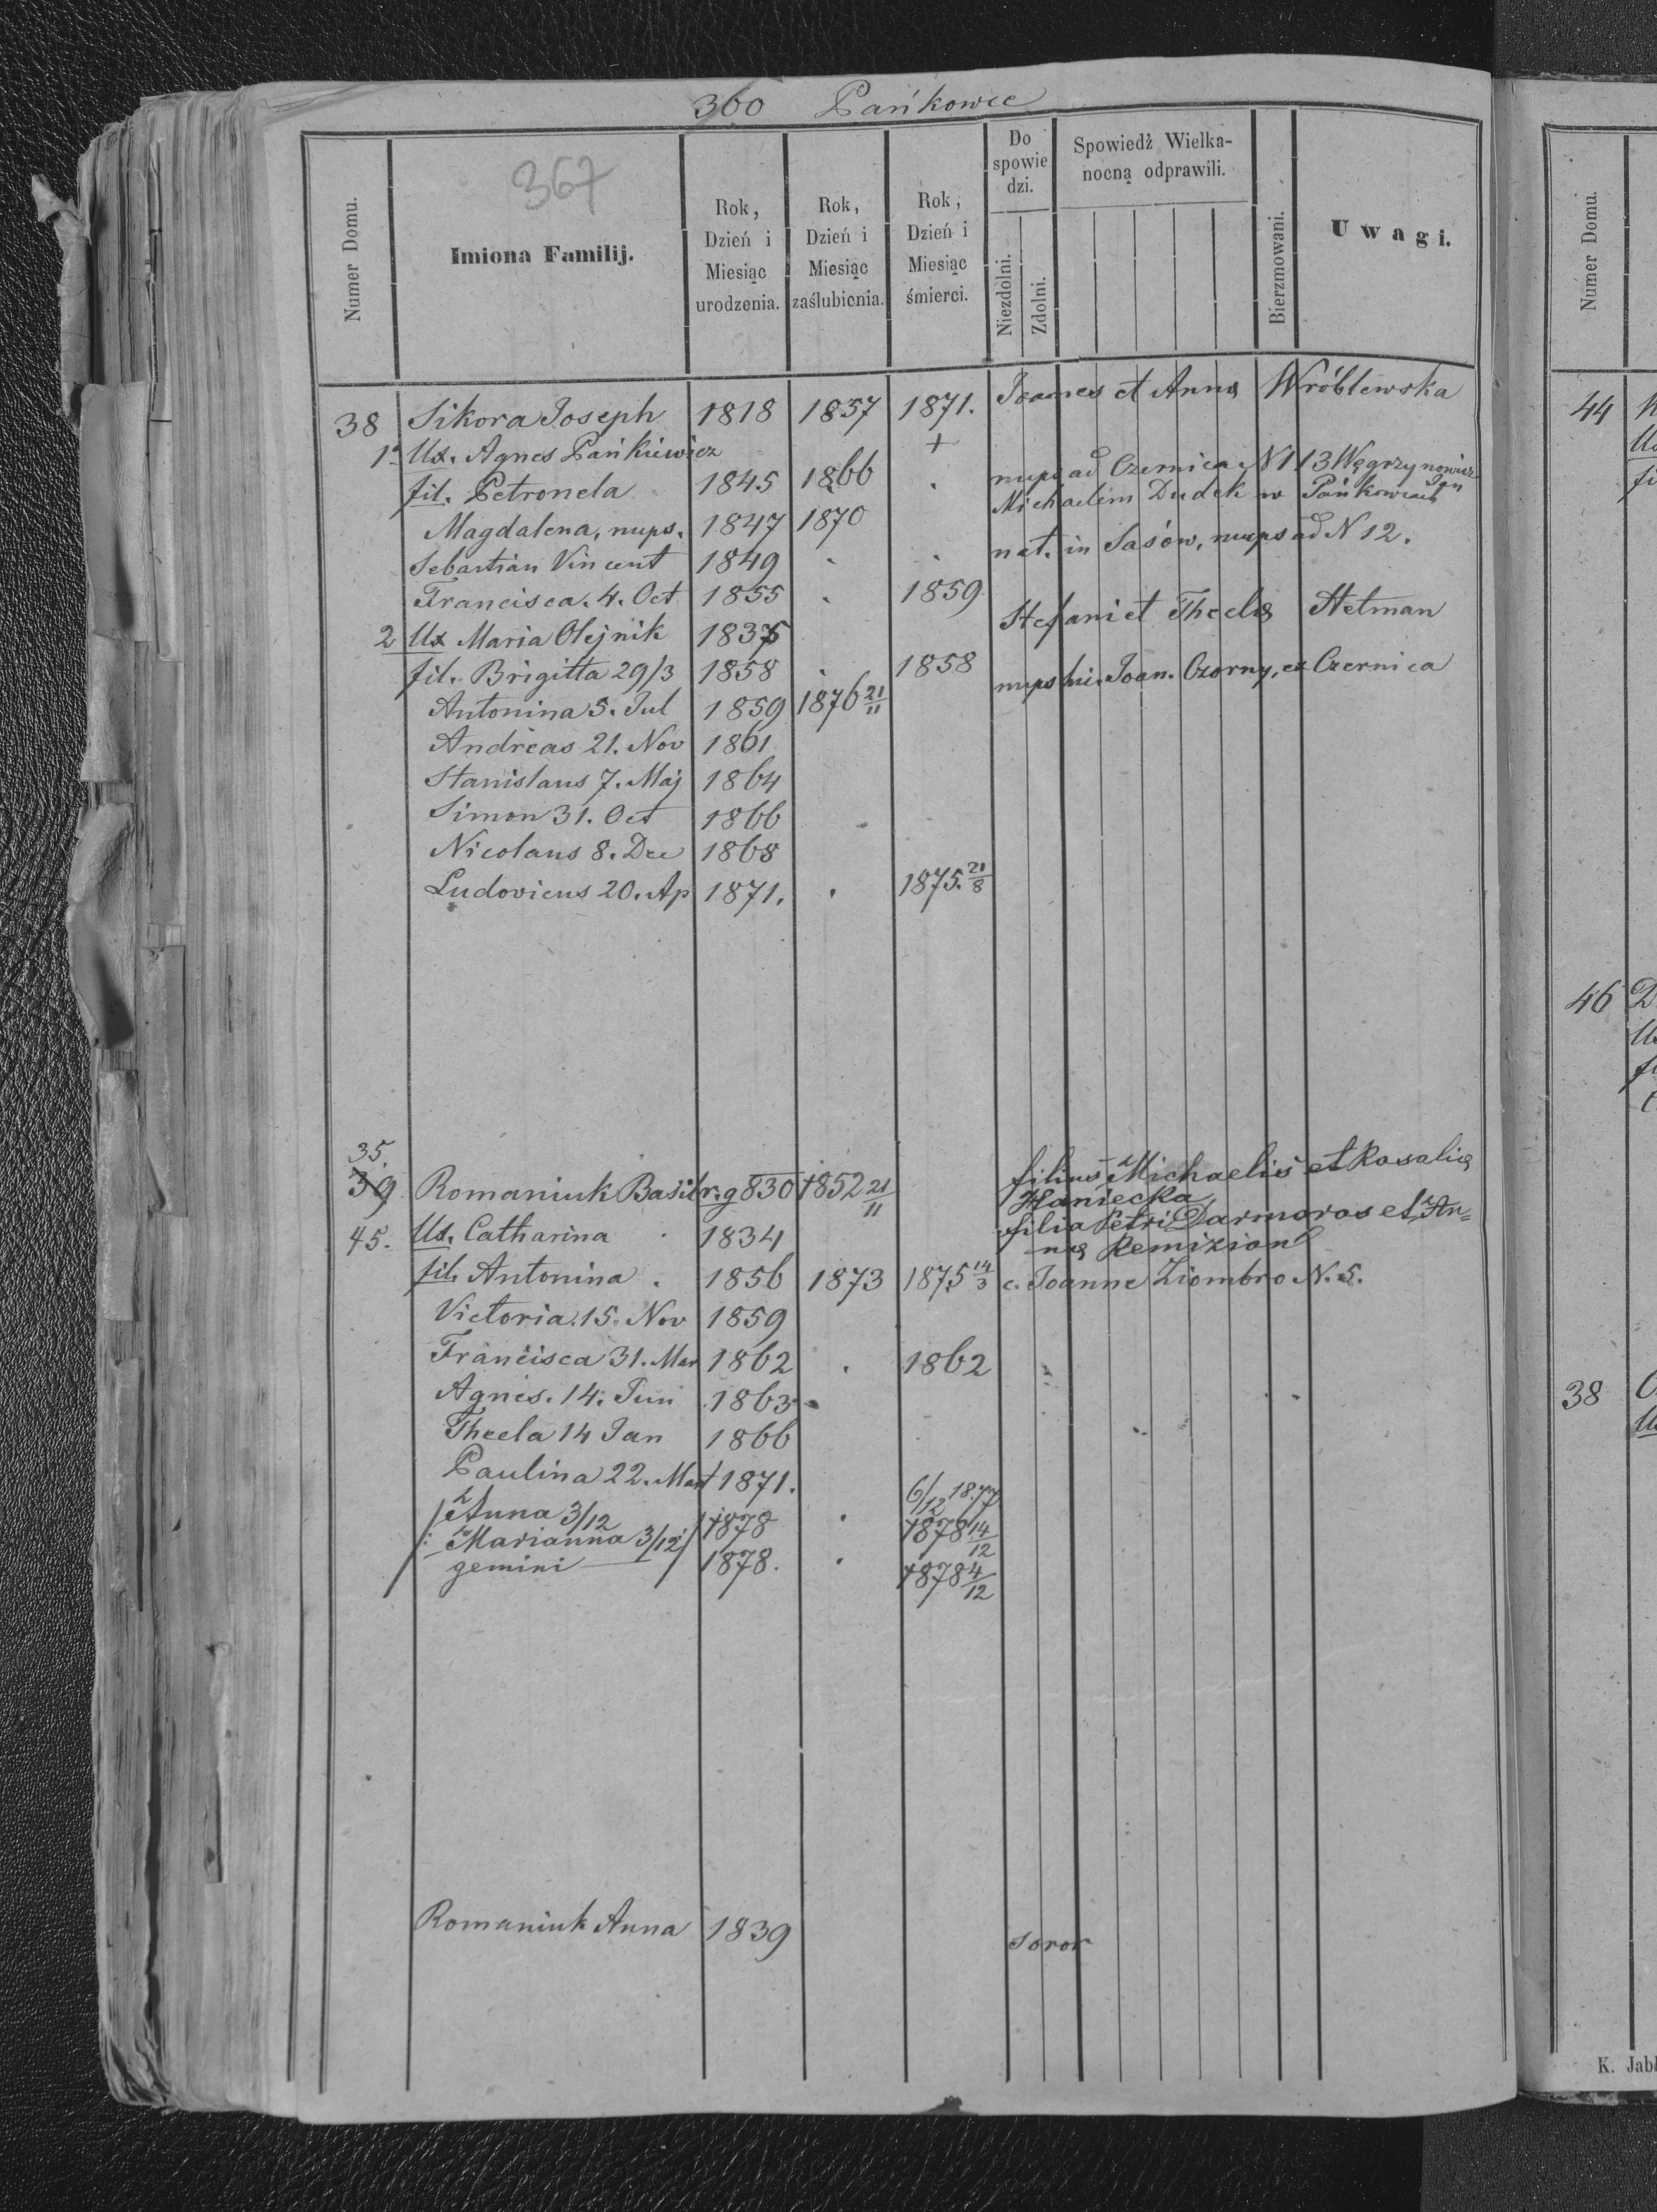 360 Pańkowce
367
Numer Domu.
Imiona Familij.
Rok, Dzień i Miesiąc urodzenia.
Rok, Dzień i Miesiąc zaślubienia.
Rok, Dzień i Miesiąc śmierci.
Do spowiedzi.
Niezdolni.
Zdolni.
Spowiedź Wielkanocną odprawili.
Bierzmowani.
Uwagi.
38 Sikora Joseph 1818 1857 1871. Joannes et Anna Wróblewska
1º Ux. Agnes Pańkiewicz +
fil. Petronela 1845 1866 nups ad Czernica N 113 Węgrzynowicz
Magdalena, nups. 1847 1870 Michaelim Dudek w Pańkowcach
Sebastian Vincent 1849 nat. in Sasów, nups ad N 12.
Francisca. 4. Oct 1855 1859
2 Ux Maria Olejnik 1835 Stefani et Thecla Hetman
fil. Brigitta 29/3 1858 1858
Antonina 5. Jul 1859 1876 21/11 nups hic. Joan. Czorny, ex Czernica
Andreas 21. Nov 1861
Stanislaus 7. Maj 1864
Simon 31. Oct 1866
Nicolaus 8. Dec 1868
Ludovicus 20. Ap 1871. 1875. 21/8
35.
39 Romaniuk Basil r.g 830 1852 21/11 filius Michaelis et Rosalia
Haniecka
45. Ux. Catharina 1834 filia Petri Darmoros et An=
na Remizion
fil. Antonina 1856 1873 1875 14/3 c. Joanne Ziombro N. 5.
Victoria. 15. Nov 1859
Francisca 31. Mar 1862 1862
Agnes. 14. Jun 1863
Thecla 14 Jan 1866
Paulina 22. Mart 1871. 6/12 1877
Anna 3/12 1878 1878 14/12
Marianna 3/12
gemini 1878. 1878 4/12
Romaniuk Anna 1839 soror
Numer Domu.
44
Ux
fi
46 D
Ux
fi
38
Ux
K. Jab